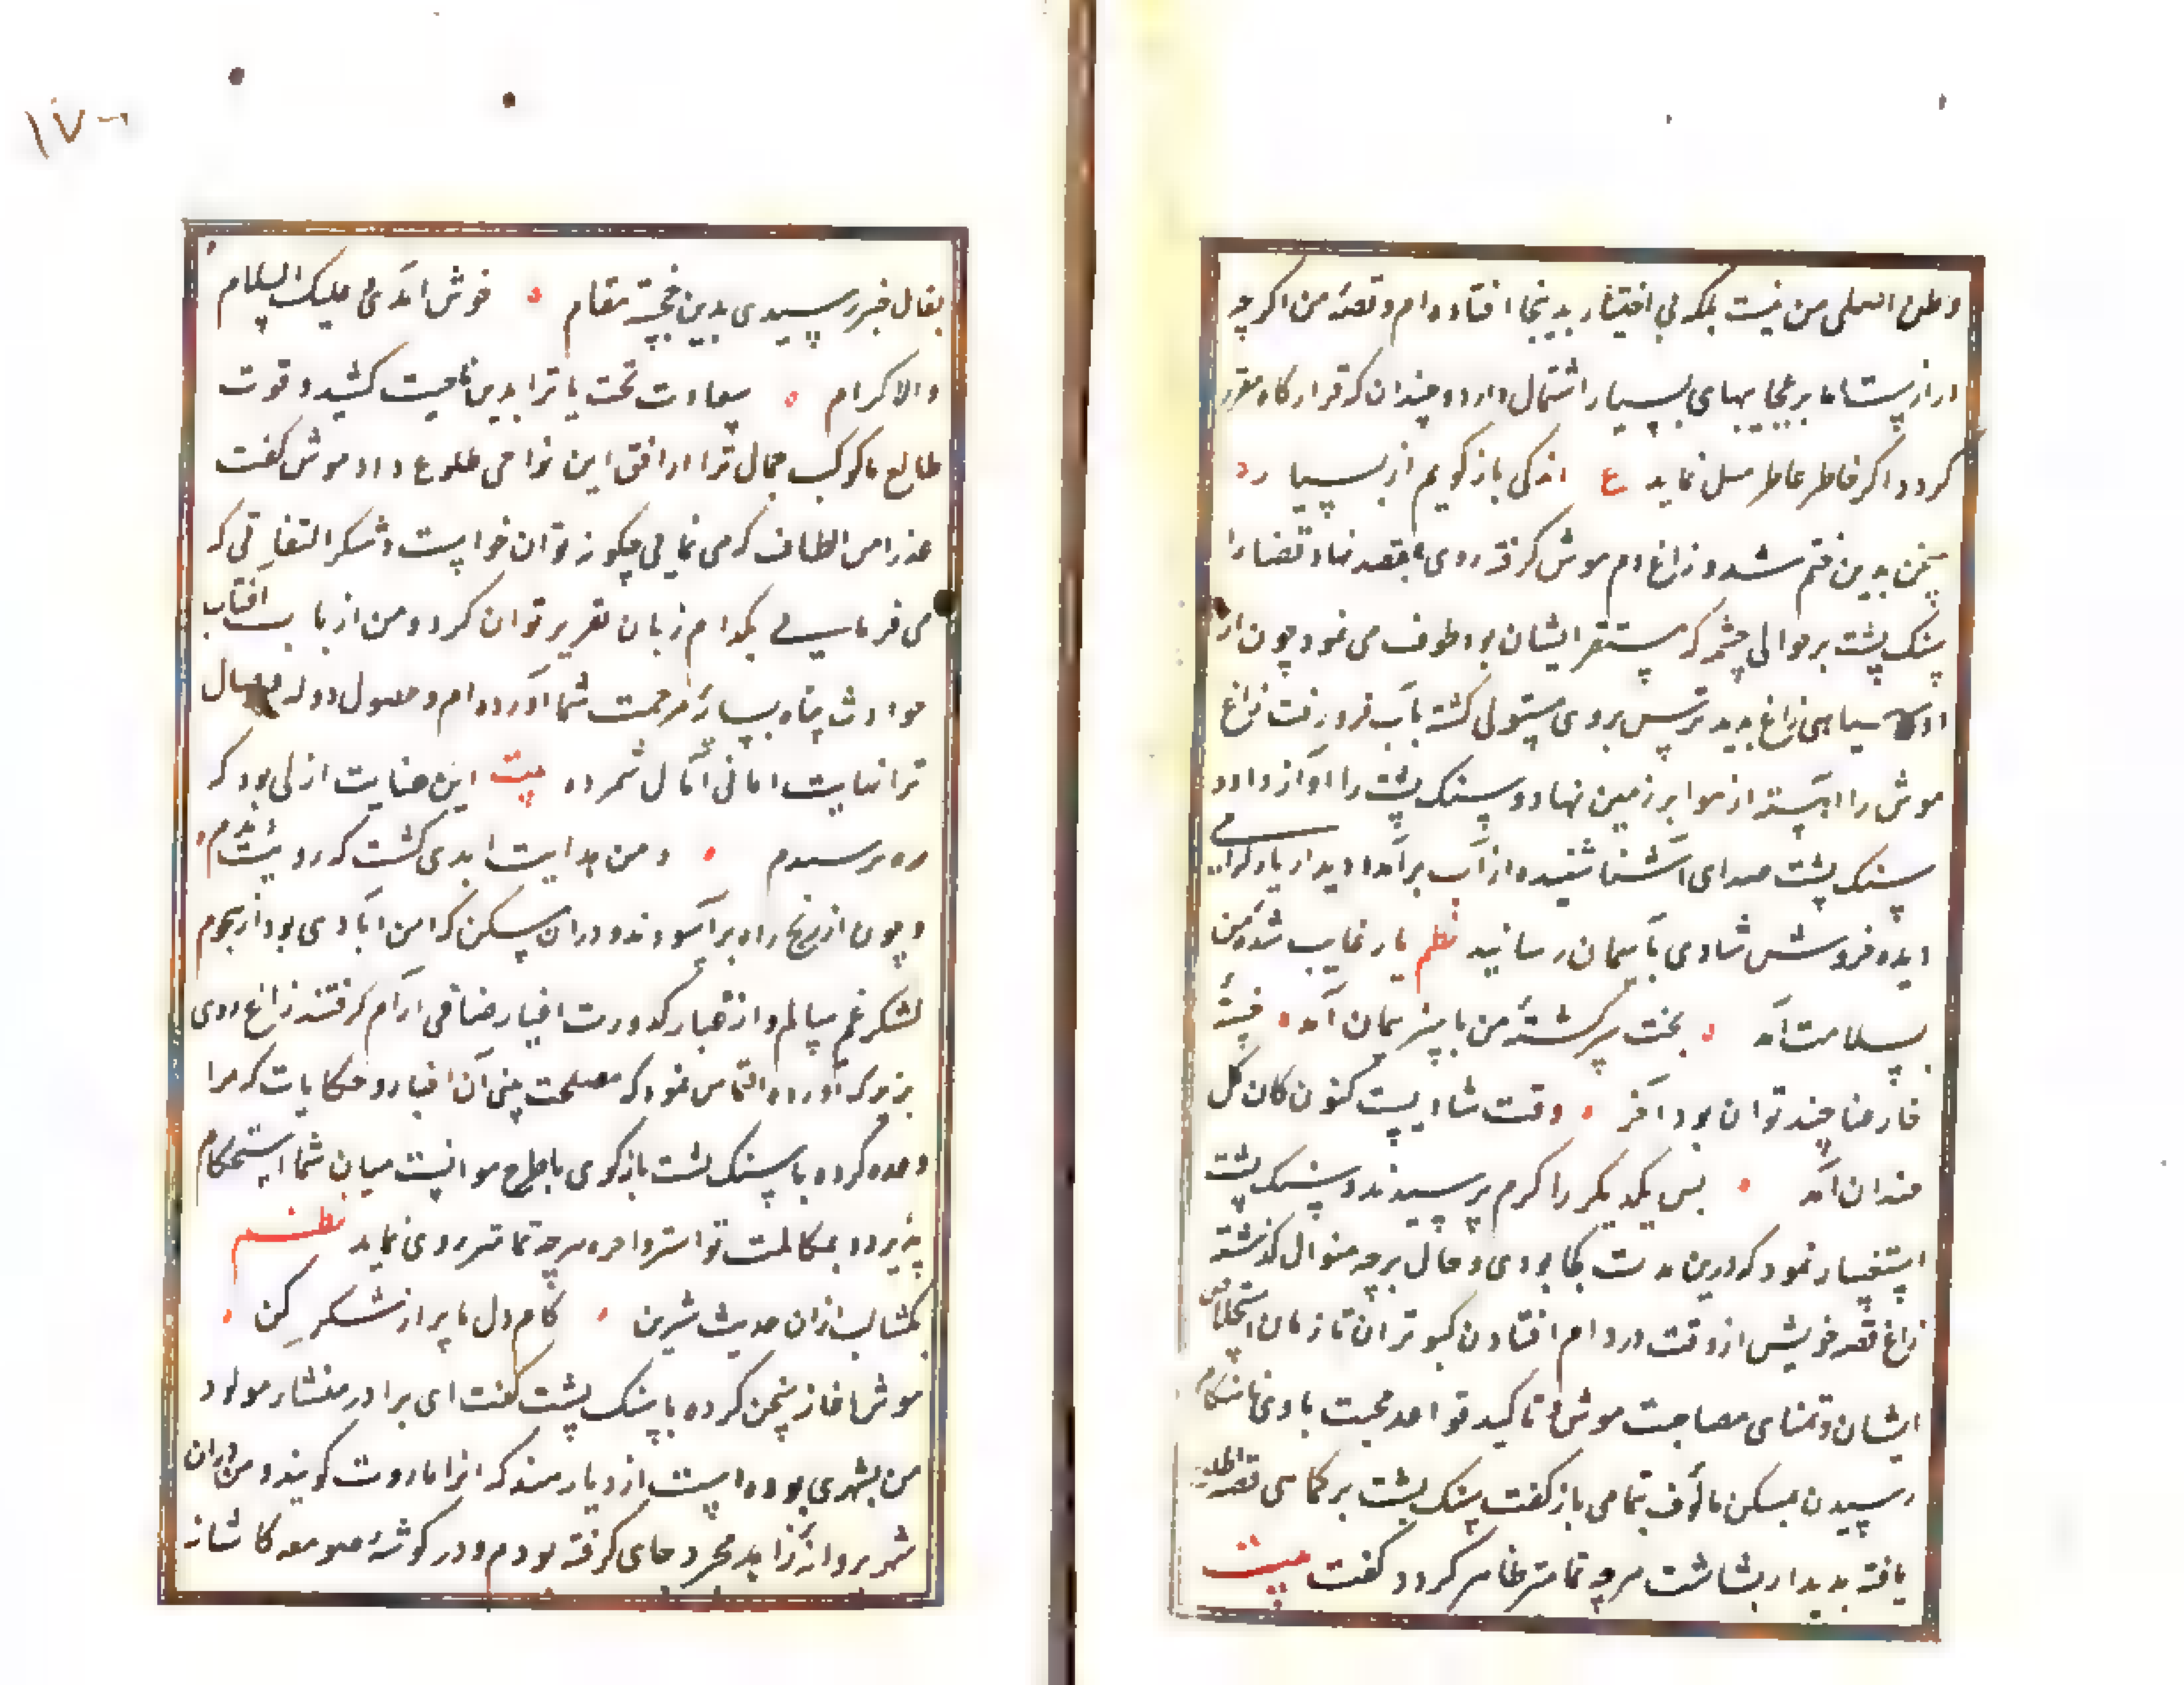 وطن اصلی من نیست بلکه بی اختیار بدینجا افتاده ام و قصهٔ من اکرچه
دراز پست اما بر عجایبهای بسیار اشتمال دارد و چندان که قرار کاه مقرر
کردد اکر خاطر عاطر میل نماید ع اندکی باز کویم از بسیا رد
سخن بدین ختم شد و زاغ دم موش کرفته روی بمقصد نهاد قضا را
سنک پشت بر حوالی چشمه که مستقر ایشان بود طوف می نمود چون از
دور سیاهی زاغ بدید ترس بروی مستولی کشته بآب فرو رفت زاغ
موش را آهسته از هوا بر زمین نهاد و سنک پشت را آواز داد
سنک پشت صدای آشنا شنیده از آب برآمد و دیدار یار کرامی
دیده خروش شادی بآسمان رسانید نظم یار غایب شده من
بسلامت آمد بخت برکشتهٔ من با سر پیمان آمد خسته
خار جفا چند توان بود آخر وقت شادیست کنون کان کل
خندان آمد پس یکدیکر را کرم پرسیدند و سنک پشت
استفسار نمود که درین مدت کجا بودی و حال بر چه منوال کذشته
زاغ قصه خویش از وقت در دام افتادن کبوتران تا زمان استخلاص
ایشان و تمنای مصاحبت موش و تاکید قواعد محبت با وی تا هنکام
رسیدن بمسکن مألوف بتمامی باز کفت سنک پشت بر کماهی قصه اطلاع
یافته بدیدار بشاشت هرچه تمامتر ظاهر کرد و کفت بیت
بفال خیر رسیدی بدین خجسته مقام خوش آمدی علیک السلام
والاکرام سعادت بخت ما ترا بدین ناحیت کشید و قوت
طالع ما کوکب جمال ترا از افق این نواحی طلوع داد موش کفت
عذر این الطاف که می نمایی چکونه توان خواست و شکر التفاتی که
می فرمایی بکدام زبان تقریر توان کرد و من از تاب آفتاب
حوادث پناه بسایهٔ مرحمت شما آورده ام و حصول دولت وصال
ترا نهایت امانی و آمال شمرده بیت این عنایت ازلی بود که
ره برسیدم و من هدایت ابدی کشت که رویت دیدم
و چون از رنج راه برآسودند و در آن مسکن که امن آبادی بود از هجوم
لشکر غم سالم و از غبار کدورت اغیار صافی آرام کرفتند زاغ روی
بزیرک آورده التماس نمود که مصلحت بینی آن اخبار و حکایات که مرا
وعده کرده با سنک پشت باز کوی تا طرح موانست میان شما استحکام
پذیرد و بمکالمت تو استرواح هرچه تمامتر روی نماید نظم
بکشا لب ازان حدیث شیرین کام دل ما پر از شکر کن
موش آغاز سخن کرده با سنک پشت کفت ای برادر منشاء و مولد
من بشهری بوده است از دیار هند که آنرا ماروت کویند و من دران
شهر بر زاویهٔ زاهد مجرد جای کرفته بودم و در کوشهٔ صومعه کاشانه